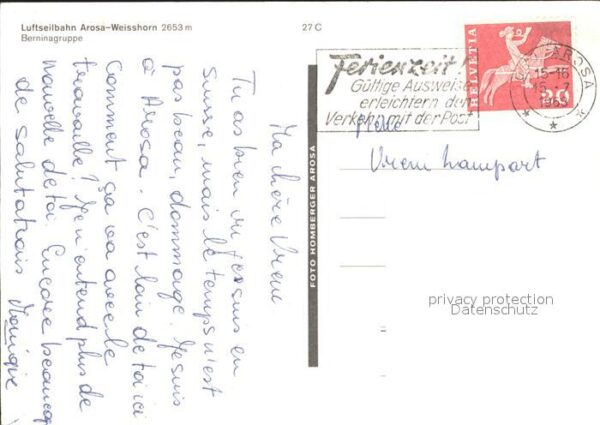 Luftseilbahn Arosa-Weisshorn 2653 m
Berninagruppe
27 C
Ferienzeit!
Gültige Ausweise
erleichtern den
Verkehr mit der Post
HELVETIA
20
AROSA
15-16
15. 7.
Mlle
Vreni Lampart
FOTO HOMBERGER AROSA
privacy protection
Datenschutz
Ma chère Vreni
Tu as bien vu, je suis en
Suisse, mais le temps n'est
pas beau, dommage. Je suis
à Arosa. C'est loin de toi ici
Comment ça va avec le
travaille? Je n'entend plus de
nouvelle de toi. Encore beaucoup
de salutations Monique